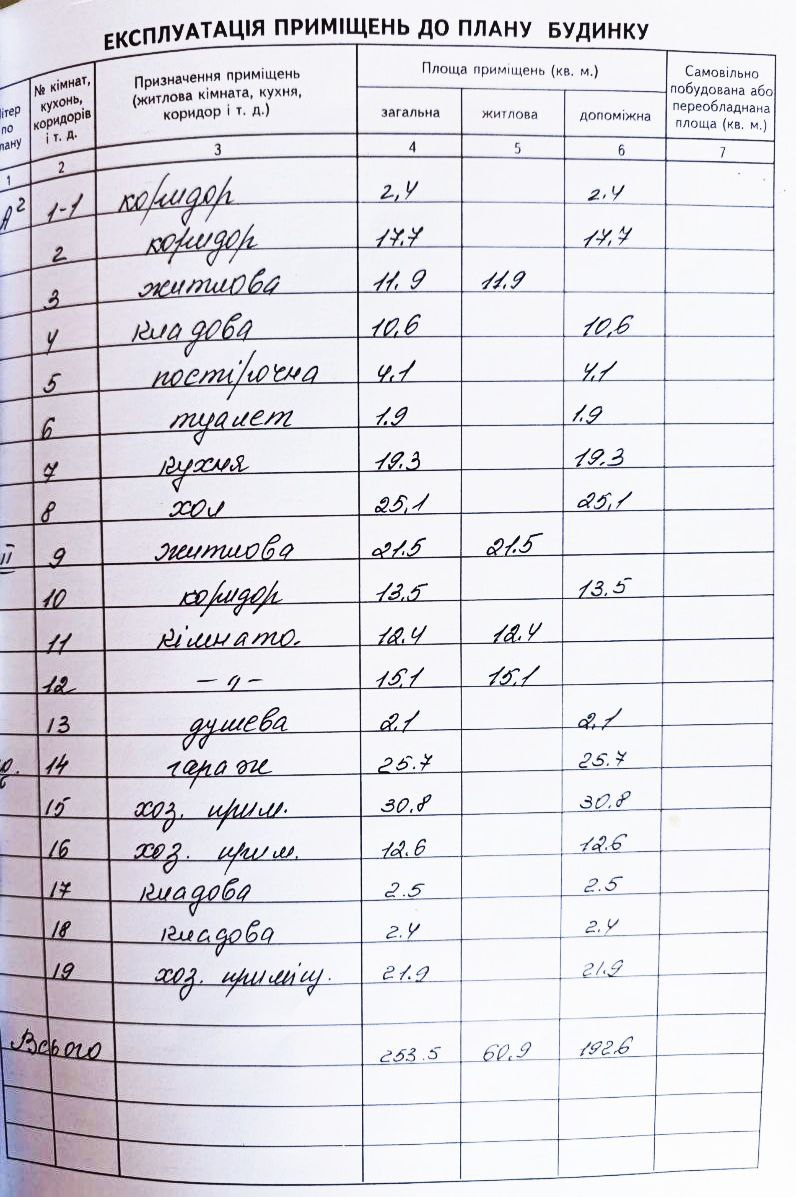 ЕКСПЛУАТАЦІЯ ПРИМІЩЕНЬ ДО ПЛАНУ БУДИНКУ
ітер по лану | № кімнат, кухонь, коридорів і т. д. | Призначення приміщень (житлова кімната, кухня, коридор і т. д.) | Площа приміщень (кв. м.) | Самовільно побудована або переобладнана площа (кв. м.)
загальна | житлова | допоміжна
1 | 2 | 3 | 4 | 5 | 6 | 7
А² 1-1 коридор 2,4 2.4
2 коридор 17.7 17,7
3 житлова 11.9 11.9
4 кладова 10,6 10,6
5 постірочна 4.1 4.1
6 туалет 1.9 1.9
7 кухня 19.3 19.3
8 хол 25,1 25,1
II 9 житлова 21.5 21.5
10 коридор 13.5 13.5
11 кімнато. 12.4 12.4
12 – 〃 – 15,1 15.1
13 душева 2.1 2,1
14 гараж 25.7 25.7
15 хоз. прим. 30,8 30.8
16 хоз. прим. 12.6 12.6
17 кладова 2.5 2.5
18 кладова 2.4 2.4
19 хоз. приміщ. 21.9 21.9
Всього 253.5 60.9 192.6